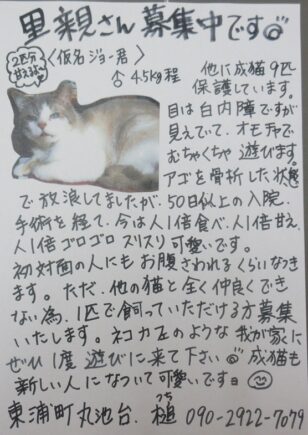 里親さん募集中です
2匹分甘えるよ〜
〈仮名ジョー君〉
♂ 4.5kg程
他に成猫9匹
保護しています。
目は白内障ですが
見えていて、オモチャで
むちゃくちゃ遊びます
アゴを骨折した状態
で放浪してましたが、50日以上の入院、
手術を経て、今は人1倍食べ、人1倍甘え、
人1倍ゴロゴロスリスリ可愛いです。
初対面の人にもお腹さわれるくらいなつき
ます。ただ、他の猫と全く仲良くでき
ない為、1匹で飼っていただける方募集
いたします。ネコカフェのような我が家に
ぜひ1度遊びに来て下さい 成猫も
新しい人になついて可愛いです
つち
東浦町丸池台. 槌 090-2922-7079